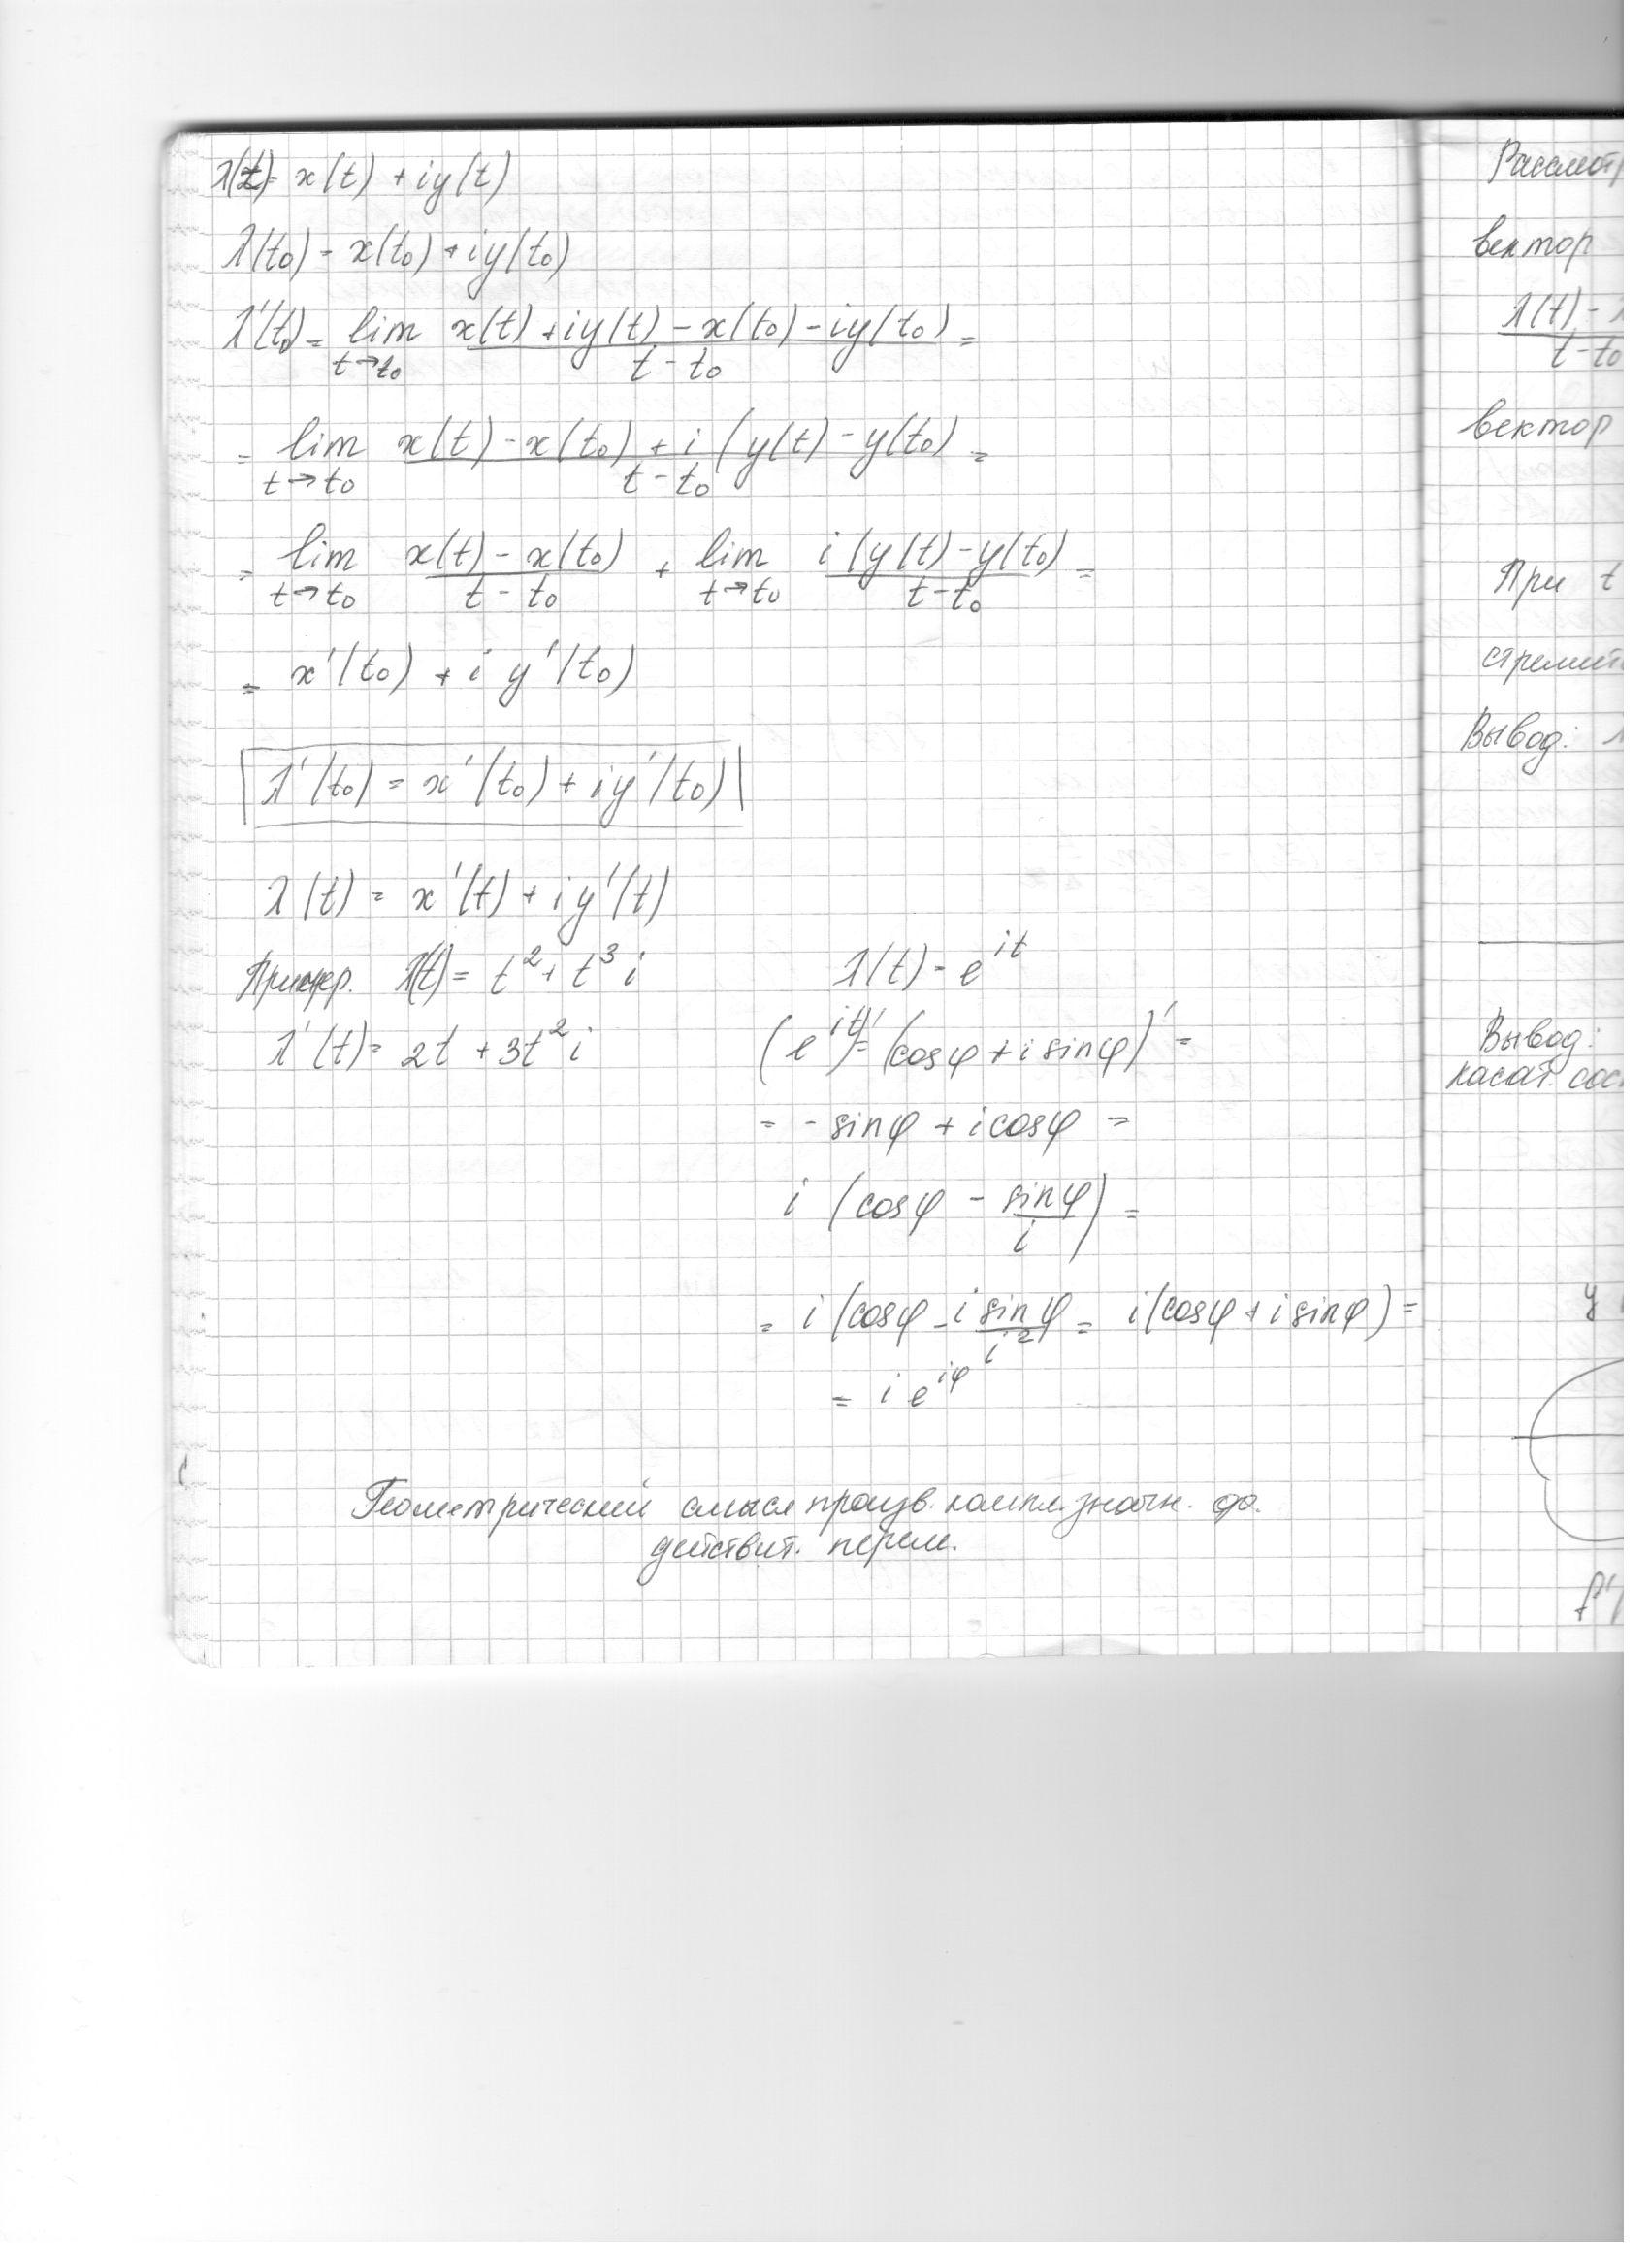 λ(t) = x(t) + iy(t)
λ(t₀) = x(t₀) + iy(t₀)
λ'(t₀) = lim_{t→t₀} (x(t) + iy(t) − x(t₀) − iy(t₀))/(t − t₀) =
= lim_{t→t₀} (x(t) − x(t₀) + i(y(t) − y(t₀))/(t − t₀) =
= lim_{t→t₀} (x(t) − x(t₀))/(t − t₀) + lim_{t→t₀} i(y(t) − y(t₀))/(t − t₀) =
= x'(t₀) + i y'(t₀)
λ'(t₀) = x'(t₀) + iy'(t₀)
λ(t) = x'(t) + iy'(t)
Пример. λ(t) = t² + t³ i
λ'(t) = 2t + 3t² i
λ(t) = e^{it}
(e^{it})' = (cosφ + i sinφ)' =
= - sinφ + i cosφ =
i (cosφ − sinφ/i) =
= i (cosφ − i sinφ/i²) = i(cosφ + i sinφ) =
= i e^{iφ}
Геометрический смысл произв. компл. значн. ф.
действит. перем.
Рассмотр
вектор
λ(t) −
t − t₀
вектор
При t
стремит
Вывод: λ
Вывод:
касат. сос
y
f'(